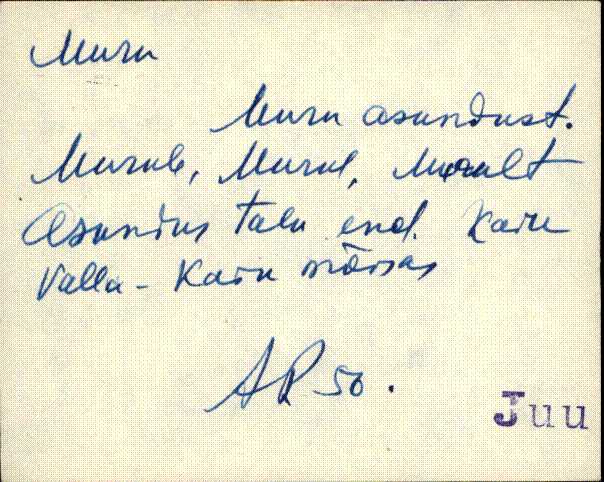 Muru
Muru asundust.
Murule, Murul, Murult
Asundus talu end. Kaiu
Valla - Kaiu mõisas
AR 50.
Juu